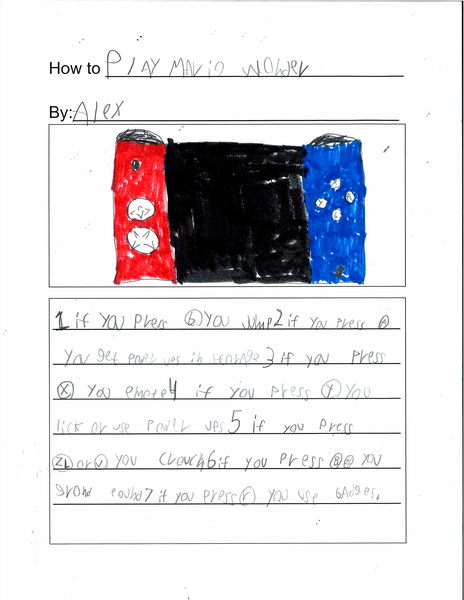 How to Play Mario Wonder
By: Alex
1 if you press (b) you jump 2 if you press
you get power ups in storage 3 if you press
(X) you emote 4 if you press (Y) you
lick or use power ups 5 if you press
(ZL) or you crouch 6 if you press you
ground pound 7 if you press (r) you use badges.